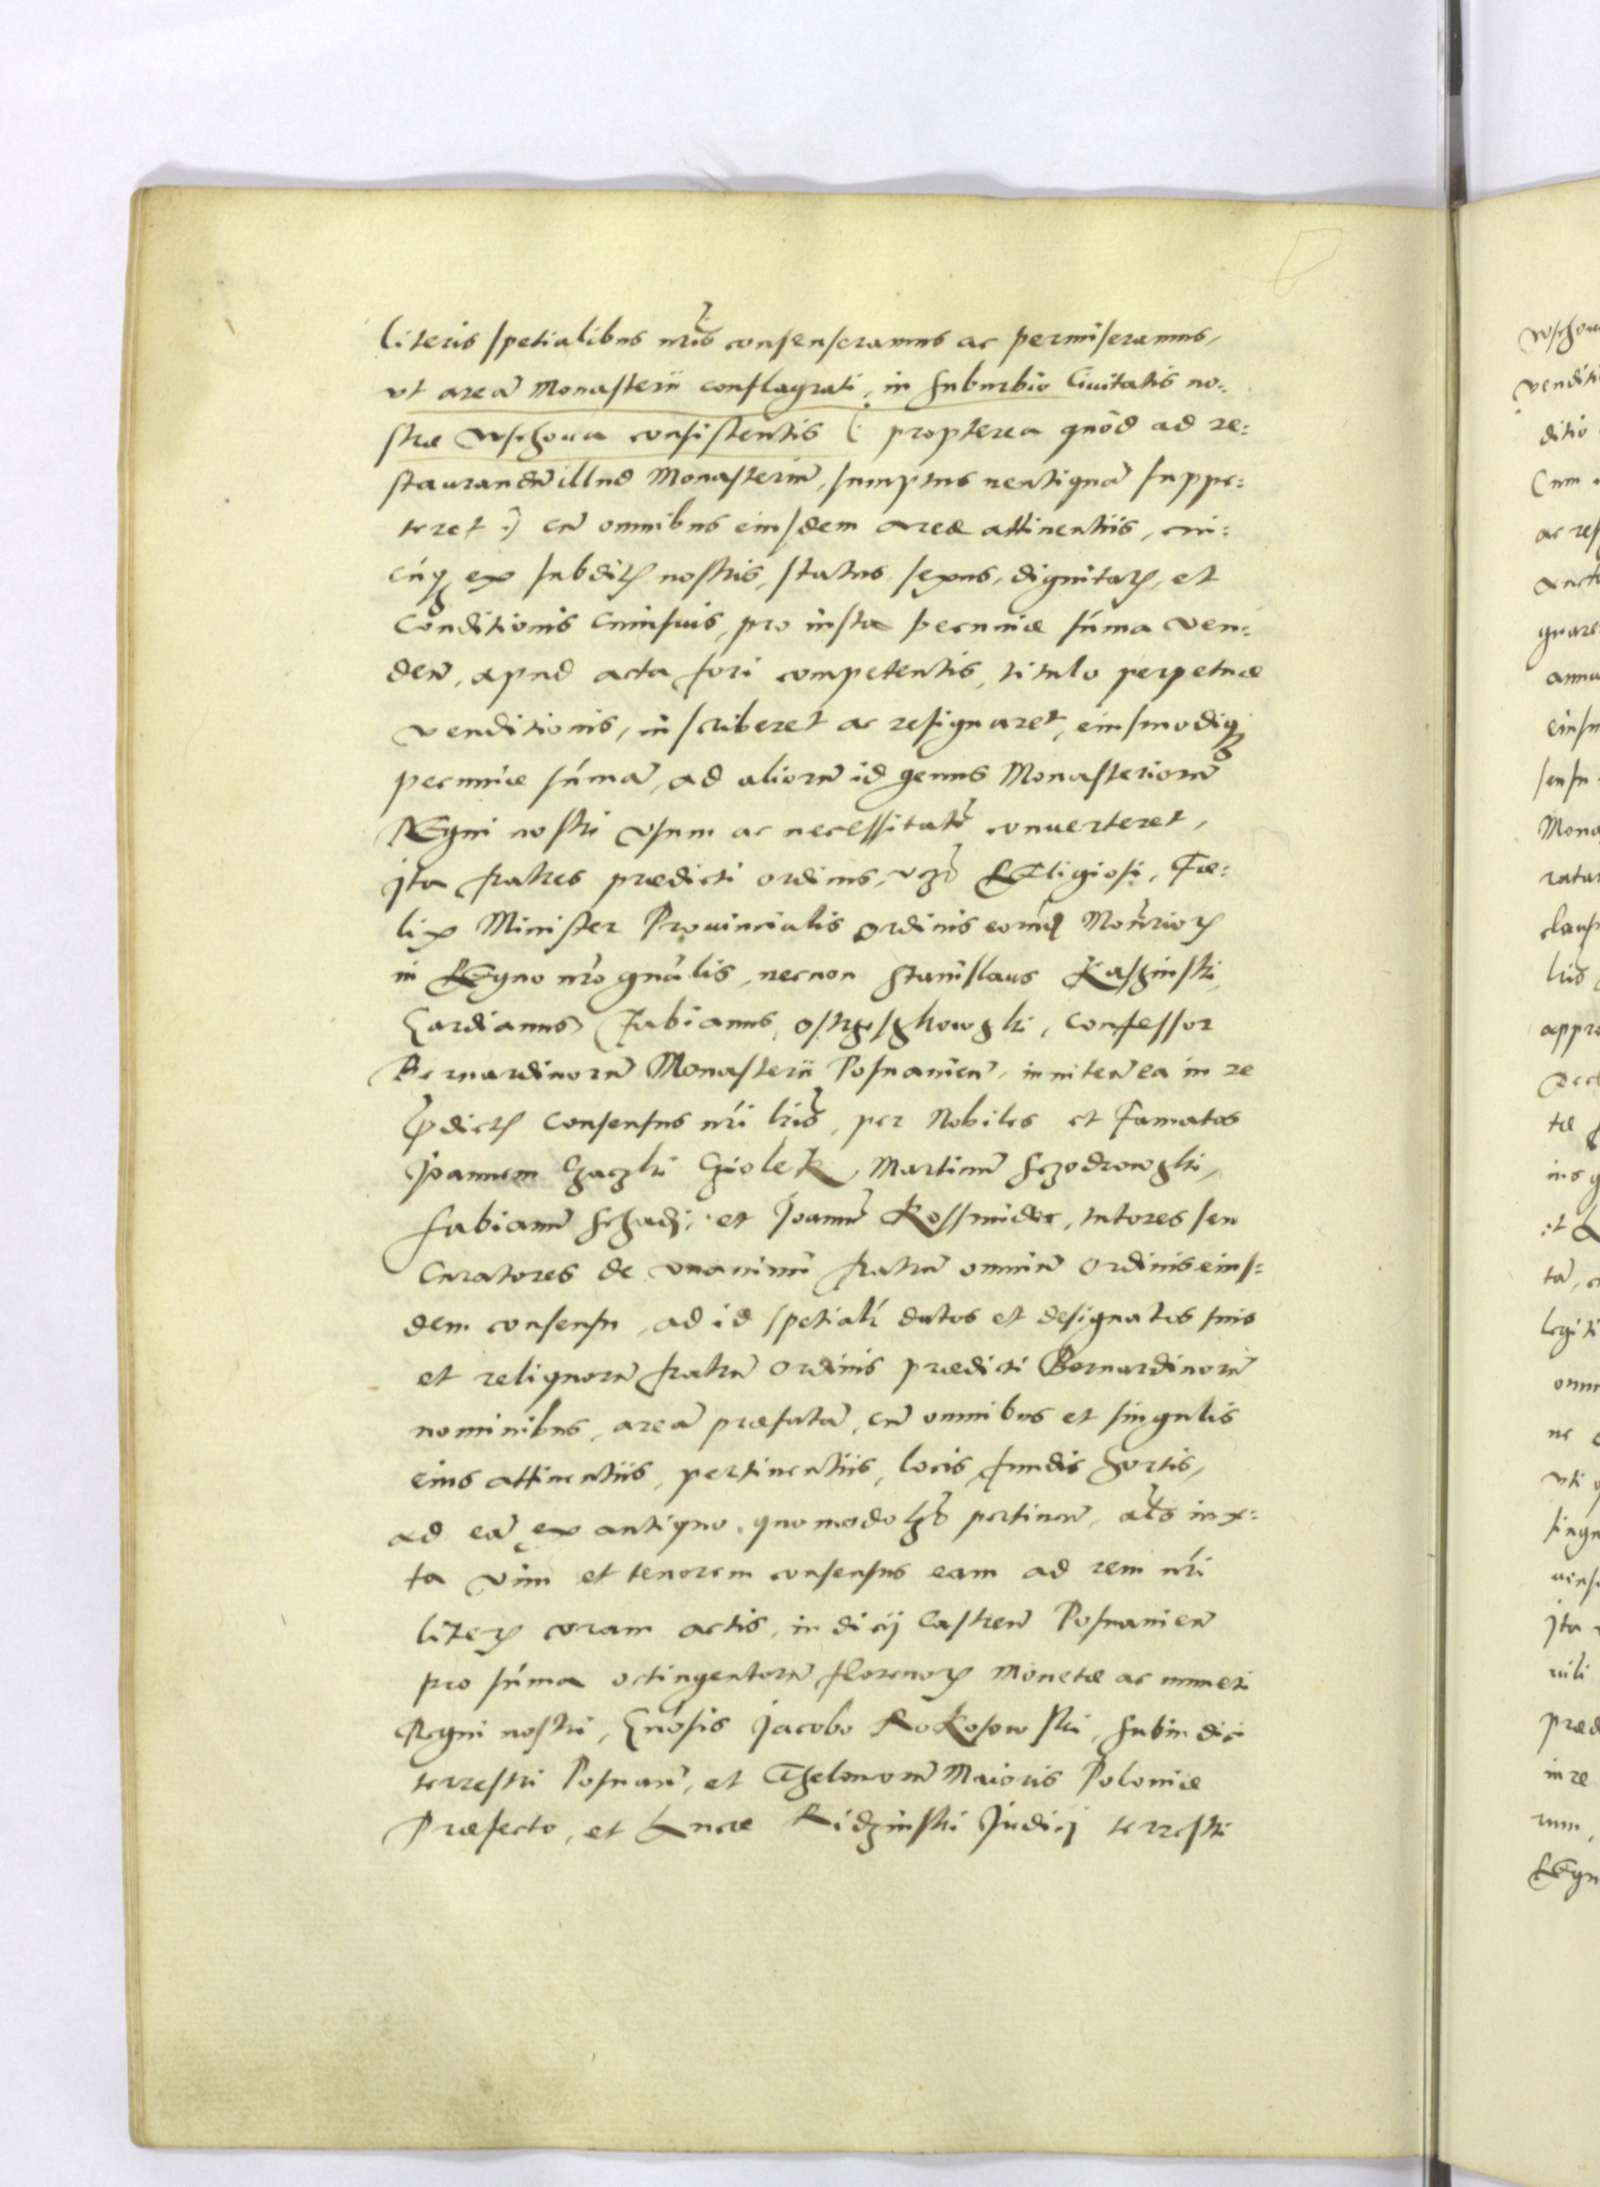 literis spetialibus nr̃is consenseramus ac permiseramus,
vt areã Monasterii conflagrati, in suburbio Ciuitatis no:
stræ Wschoua consistentis (: propterea quòd ad re:
staurandũ illud Monasteriũ, sumptus neutiquã suppe:
teret :) cũ omnibus eiusdem areæ attinentiis, cui:
cúq; ex subditꝭ nostris, status, sexus, dignitatꝭ, et
Conditionis cuiusuis, pro iusta pecuniæ sũma ven:
deñ, apud acta fori competentis, titulo perpetuæ
venditionis, inscriberet ac resignaret, eiusmodiq;
pecuniæ sũmã, ad aliorũ id genus Monasteriorũ
REgni nostri vsum ac necessitatẽ conuerteret,
Jta fratres prædicti ordinis, vz REligiosi, Fæ:
lix Minister Prouincialis Ordinis eorũd Moñrioꝝ
in REgno nr̃o gnãlis, necnon Stanislaus
Gardianus, Fabianus, Confessor
Bernardinorũ Monasterii Posnanieñ, inniteñ ea in re
p̃dictꝭ Consensus nr̃i lr̃is, per Nobiles et Famatos
Joannem Gzioleк, Martinũ Sczodrowski,
Fabianũ et Joannẽ tutores seu
Curatores de vnanimi fratrũ omniũ Ordinis eius:
dem consensu, ad id spetialr̃ datos et designatos suis
et reliquorũ fratrũ Ordinis prædicti Bernardinorũ
nominibus, areã præfatã, cũ omnibus et singulis
eius attinentiis, pertinentiis, locis, fundis hortis,
ad eã ex antiquo, quomodolz pertineñ, als iux:
ta vim et tenorem consensus eam ad rem nr̃i
literꝭ coram actis, iudicij Castreñ Posnanieñ
pro sũma octingentorũ florenoꝝ Monetæ ac numeri
Regni nostri, Gñosis Jacobo Rokosowski, Subiudici
terrestri Posnañ, et Thelonorũ Maioris Poloniæ
Præfecto, et Lucæ Ridzinski Judicj terrestri